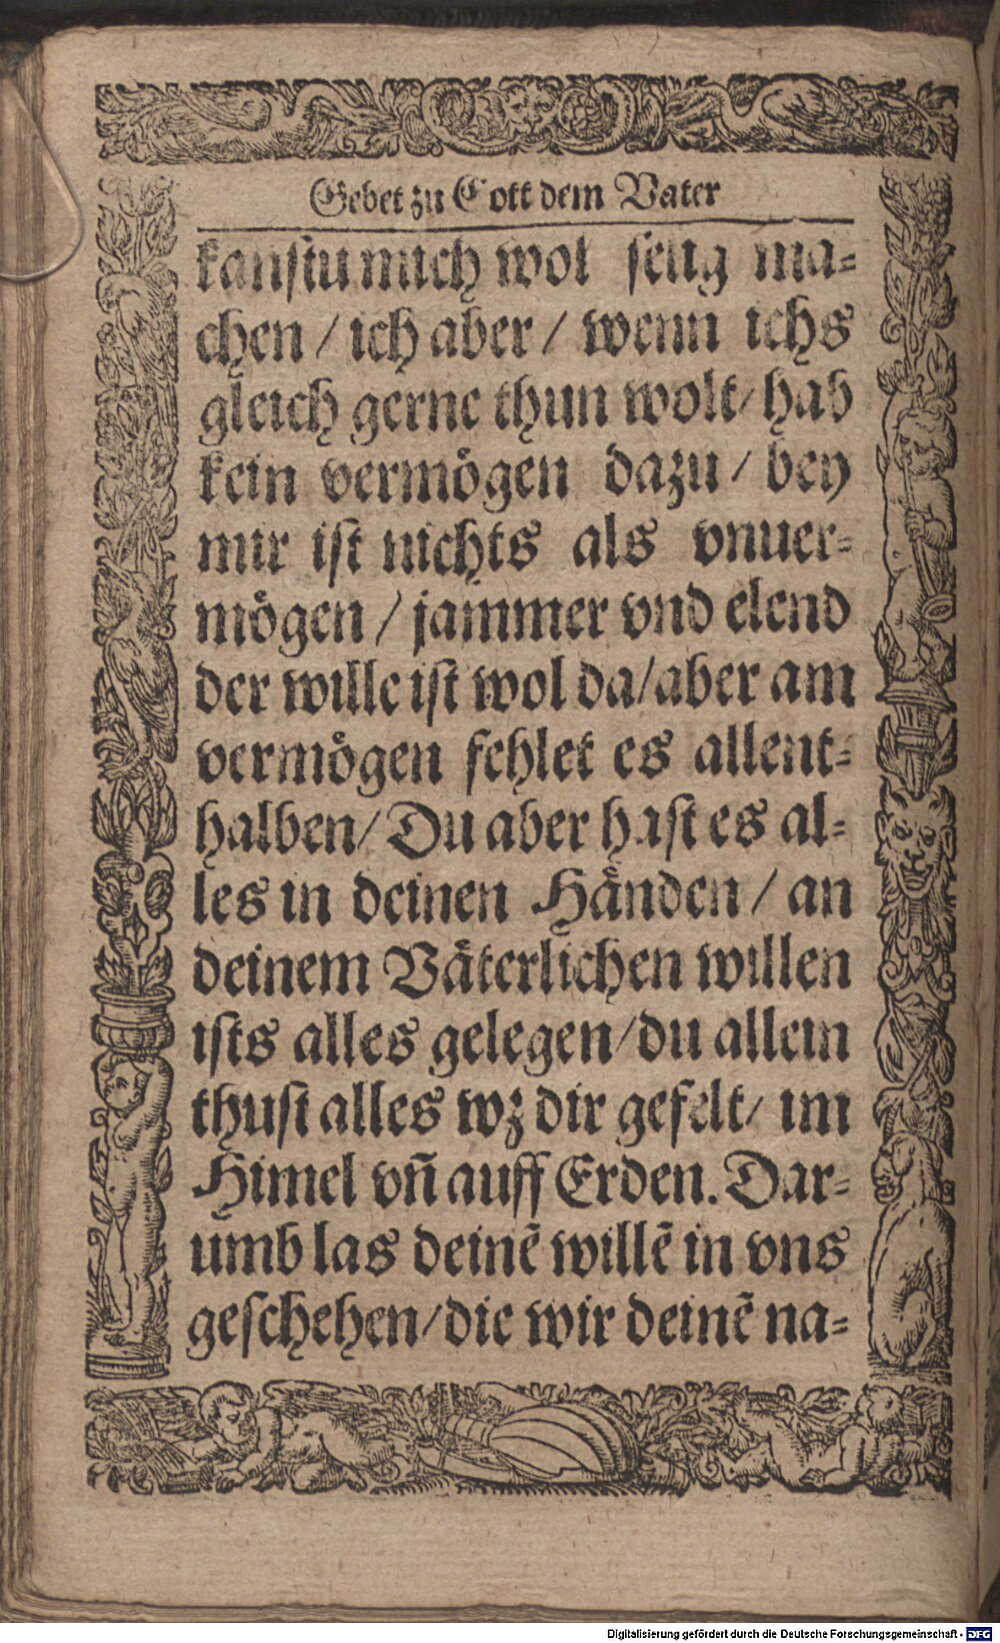 Gebet zu Gott dem Vater
kanstu mich wol selig ma=
chen / ich aber / wenn ichs
gleich gerne thun wolt / hab
kein vermögen dazu / bey
mir ist nichts als vnuer=
mögen / jammer vnd elend
der wille ist wol da / aber am
vermögen fehlet es allent=
halben / Du aber hast es al=
les in deinen Händen / an
deinem Väterlichen willen
ists alles gelegen / du allein
thust alles wz dir gefelt / im
Himel vñ auff Erden. Dar=
umb las deinẽ willẽ in vns
geschehen / die wir deinẽ na=
Digitalisierung gefördert durch die Deutsche Forschungsgemeinschaft - DFG